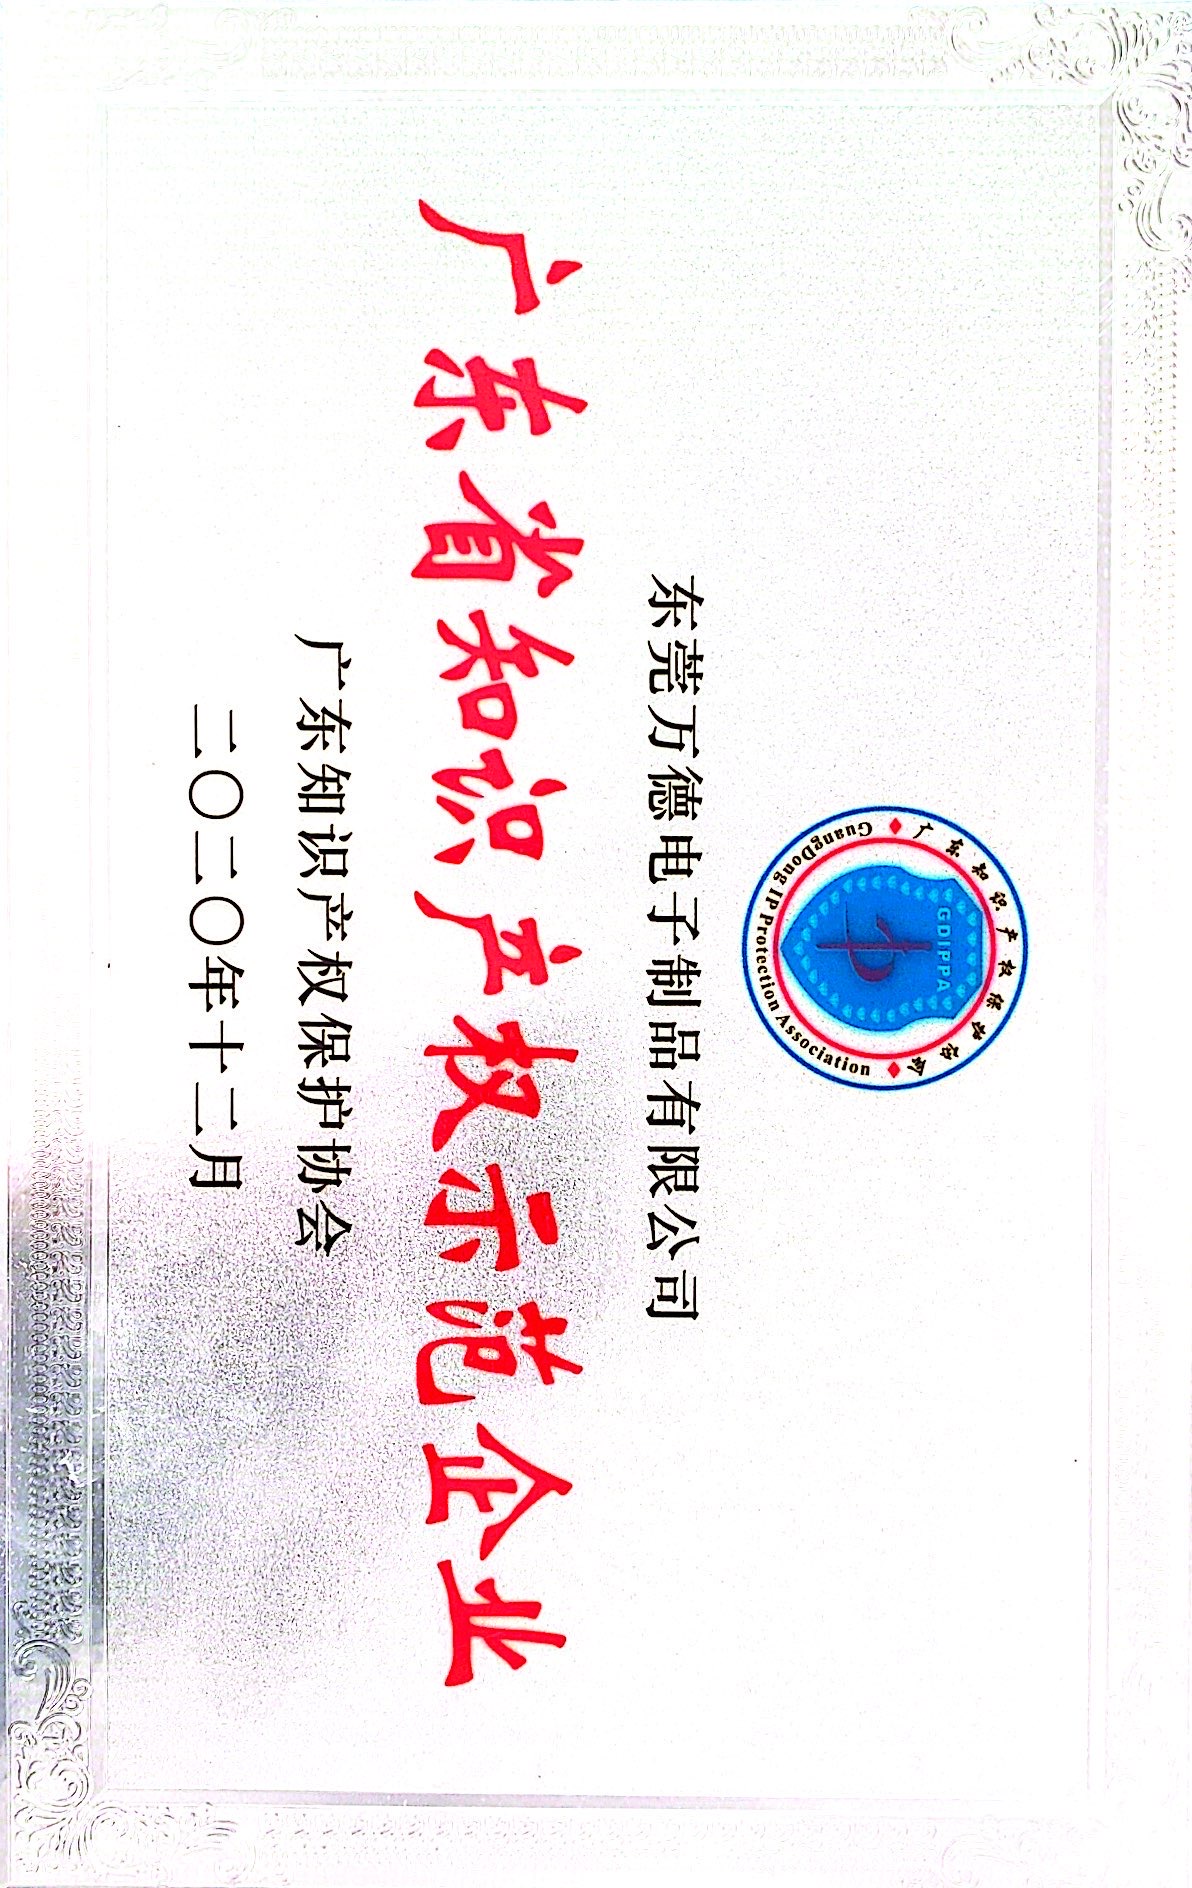 广东知识产权保护协会
GDIPPA
GuangDong IP Protection Association
东莞万德电子制品有限公司
广东省知识产权示范企业
广东知识产权保护协会
二〇二〇年十二月